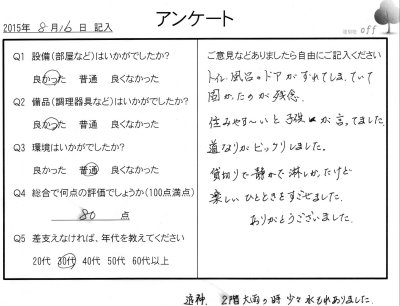 アンケート
off
2015年 8月16日 記入
Q1 設備(部屋など)はいかがでしたか?
良かった 普通 良くなかった
Q2 備品(調理器具など)はいかがでしたか?
良かった 普通 良くなかった
Q3 環境はいかがでしたか?
良かった 普通 良くなかった
Q4 総合で何点の評価でしょうか(100点満点)
80 点
Q5 差支えなければ、年代を教えてください
20代 30代 40代 50代 60代以上
ご意見などありましたら自由にご記入ください
トイレ、風呂のドアがずれてしまっていて
固かったのが残念。
住みやす〜いと子供が言ってました。
道なりがビックリしました。
貸切りで静かで淋しかったけど
楽しいひとときをすごせました。
ありがとうございました。
追伸、2階大雨の時少々水もれありました。